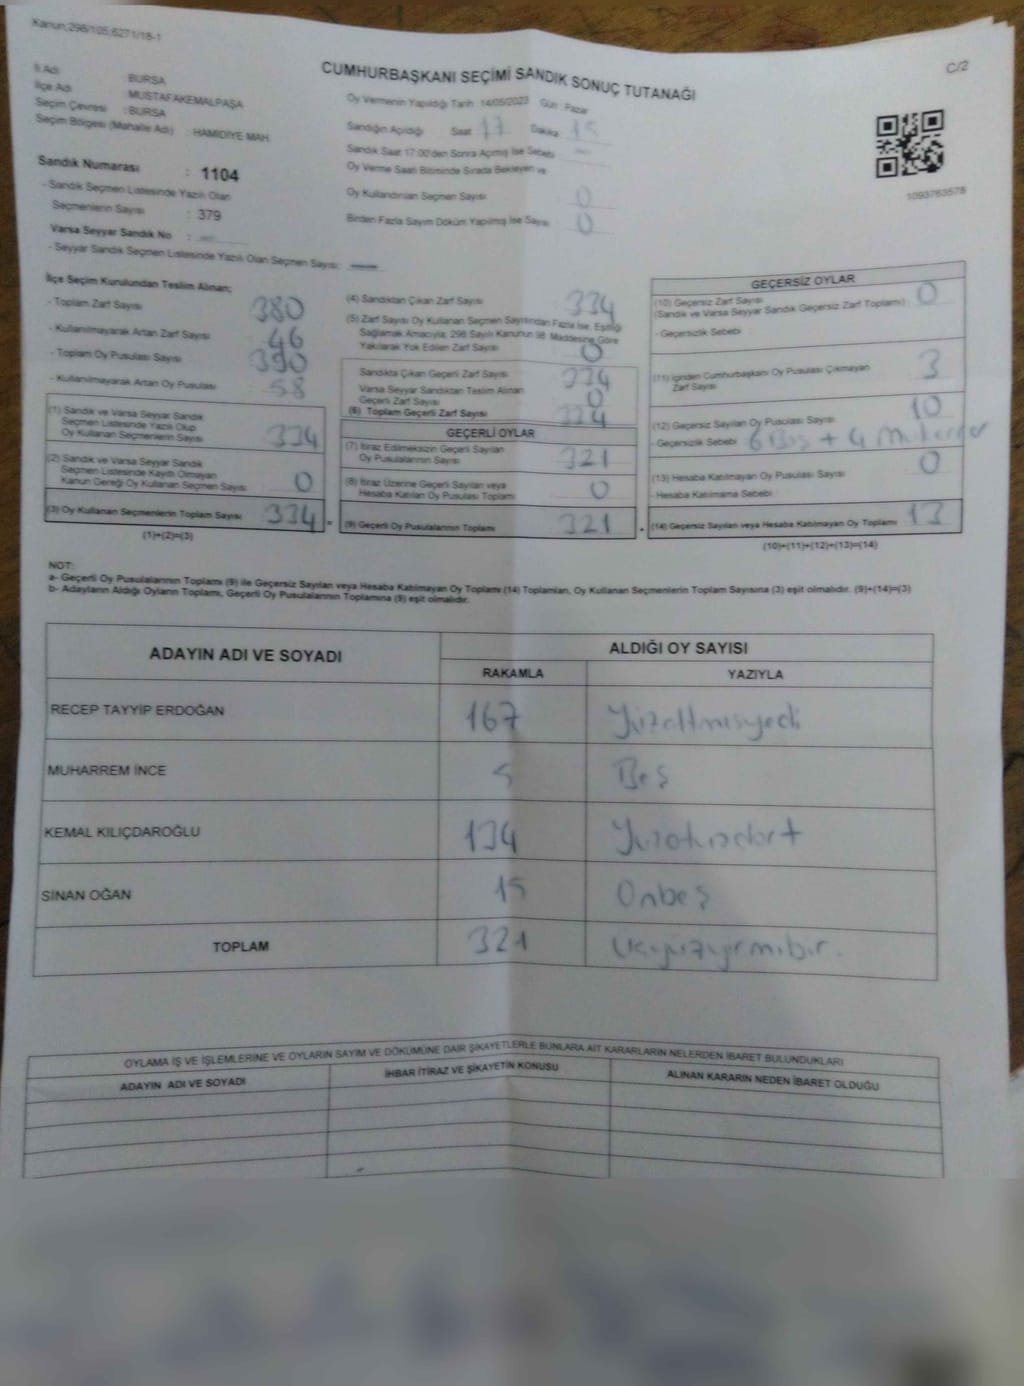 Kanun:298/105,6271/18-1
C/2
CUMHURBAŞKANI SEÇİMİ SANDIK SONUÇ TUTANAĞI
İl Adı : BURSA
İlçe Adı : MUSTAFAKEMALPAŞA
Seçim Çevresi : BURSA
Seçim Bölgesi (Mahalle Adı) : HAMIDIYE MAH.
Oy Vermenin Yapıldığı Tarih : 14/05/2023 Gün : Pazar
Sandığın Açıldığı Saat 17 Dakika 15
Sandık Saat 17:00'den Sonra Açılmış İse Sebebi
Oy Verme Saati Bitiminde Sırada Bekleyen ve
Oy Kullandırılan Seçmen Sayısı 0
Birden Fazla Sayım Döküm Yapılmış İse Sayısı 0
1093763578
Sandık Numarası : 1104
- Sandık Seçmen Listesinde Yazılı Olan
Seçmenlerin Sayısı : 379
Varsa Seyyar Sandık No : —
- Seyyar Sandık Seçmen Listesinde Yazılı Olan Seçmen Sayısı: —
İlçe Seçim Kurulundan Teslim Alınan;
- Toplam Zarf Sayısı 380
- Kullanılmayarak Artan Zarf Sayısı 46
- Toplam Oy Pusulası Sayısı 390
- Kullanılmayarak Artan Oy Pusulası 58
(1) Sandık ve Varsa Seyyar Sandık
Seçmen Listesinde Yazılı Olup
Oy Kullanan Seçmenlerin Sayısı 334
(2) Sandık ve Varsa Seyyar Sandık
Seçmen Listesinde Kayıtlı Olmayan
Kanun Gereği Oy Kullanan Seçmen Sayısı 0
(3) Oy Kullanan Seçmenlerin Toplam Sayısı 334 =
(1)+(2)=(3)
(4) Sandıktan Çıkan Zarf Sayısı 334
(5) Zarf Sayısı Oy Kullanan Seçmen Sayısından Fazla İse, Eşitliği
Sağlamak Amacıyla, 298 Sayılı Kanunun 98. Maddesine Göre
Yakılarak Yok Edilen Zarf Sayısı 0
Sandıkta Çıkan Geçerli Zarf Sayısı 334
Varsa Seyyar Sandıktan Teslim Alınan
Geçerli Zarf Sayısı 0
(6) Toplam Geçerli Zarf Sayısı 334
GEÇERLİ OYLAR
(7) İtiraz Edilmeksizin Geçerli Sayılan
Oy Pusulalarının Sayısı 321
(8) İtiraz Üzerine Geçerli Sayılan veya
Hesaba Katılan Oy Pusulası Toplamı 0
(9) Geçerli Oy Pusulalarının Toplamı 321 +
GEÇERSİZ OYLAR
(10) Geçersiz Zarf Sayısı
(Sandık ve Varsa Seyyar Sandık Geçersiz Zarf Toplamı) 0
- Geçersizlik Sebebi :
(11) İçinden Cumhurbaşkanı Oy Pusulası Çıkmayan
Zarf Sayısı 3
(12) Geçersiz Sayılan Oy Pusulası Sayısı 10
- Geçersizlik Sebebi 6 Boş + 4 Mükerrer
(13) Hesaba Katılmayan Oy Pusulası Sayısı 0
- Hesaba Katılmama Sebebi
(14) Geçersiz Sayılan veya Hesaba Katılmayan Oy Toplamı 13
(10)+(11)+(12)+(13)=(14)
NOT:
a- Geçerli Oy Pusulalarının Toplamı (9) ile Geçersiz Sayılan veya Hesaba Katılmayan Oy Toplamı (14) Toplamları, Oy Kullanan Seçmenlerin Toplam Sayısına (3) eşit olmalıdır. (9)+(14)=(3)
b- Adayların Aldığı Oyların Toplamı, Geçerli Oy Pusulalarının Toplamına (9) eşit olmalıdır.
ADAYIN ADI VE SOYADI
ALDIĞI OY SAYISI
RAKAMLA YAZIYLA
RECEP TAYYİP ERDOĞAN 167 Yüzaltmışyedi
MUHARREM İNCE 5 Beş
KEMAL KILIÇDAROĞLU 134 Yüzotuzdört
SİNAN OĞAN 15 Onbeş
TOPLAM 321 Üçyüzyirmibir.
OYLAMA İŞ VE İŞLEMLERİNE VE OYLARIN SAYIM VE DÖKÜMÜNE DAİR ŞİKAYETLERLE BUNLARA AİT KARARLARIN NELERDEN İBARET BULUNDUKLARI
ADAYIN ADI VE SOYADI İHBAR İTİRAZ VE ŞİKAYETİN KONUSU ALINAN KARARIN NEDEN İBARET OLDUĞU